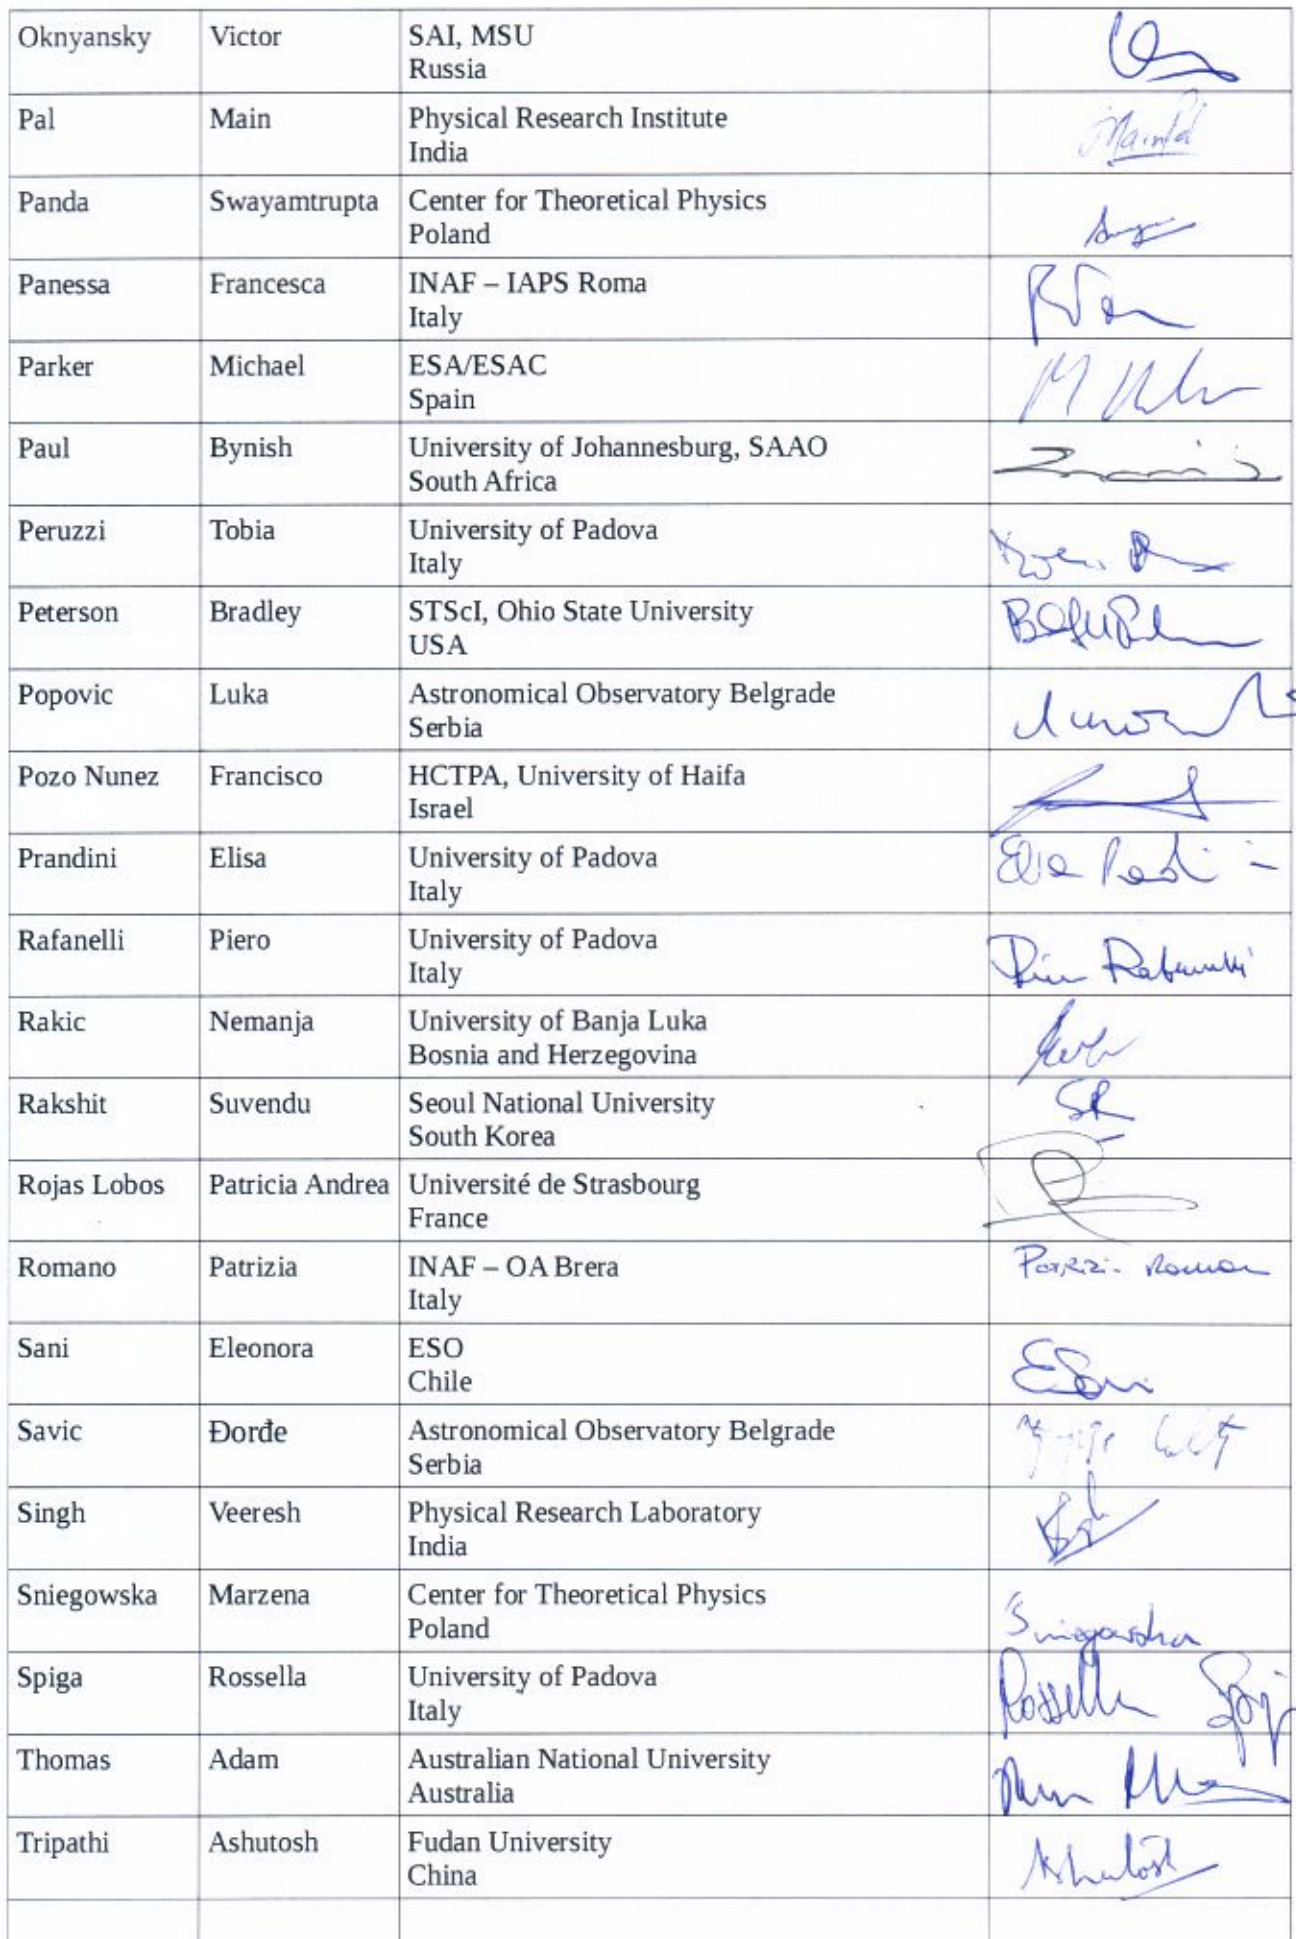 Oknyansky Victor SAI, MSU
Russia
Pal Main Physical Research Institute
India
Panda Swayamtrupta Center for Theoretical Physics
Poland
Panessa Francesca INAF – IAPS Roma
Italy
Parker Michael ESA/ESAC
Spain
Paul Bynish University of Johannesburg, SAAO
South Africa
Peruzzi Tobia University of Padova
Italy
Peterson Bradley STScI, Ohio State University
USA
Popovic Luka Astronomical Observatory Belgrade
Serbia
Pozo Nunez Francisco HCTPA, University of Haifa
Israel
Prandini Elisa University of Padova
Italy
Rafanelli Piero University of Padova
Italy
Rakic Nemanja University of Banja Luka
Bosnia and Herzegovina
Rakshit Suvendu Seoul National University SR
South Korea
Rojas Lobos Patricia Andrea Université de Strasbourg
France
Romano Patrizia INAF – OA Brera
Italy
Sani Eleonora ESO
Chile
Savic Đorđe Astronomical Observatory Belgrade
Serbia
Singh Veeresh Physical Research Laboratory
India
Sniegowska Marzena Center for Theoretical Physics
Poland
Spiga Rossella University of Padova
Italy
Thomas Adam Australian National University
Australia
Tripathi Ashutosh Fudan University
China